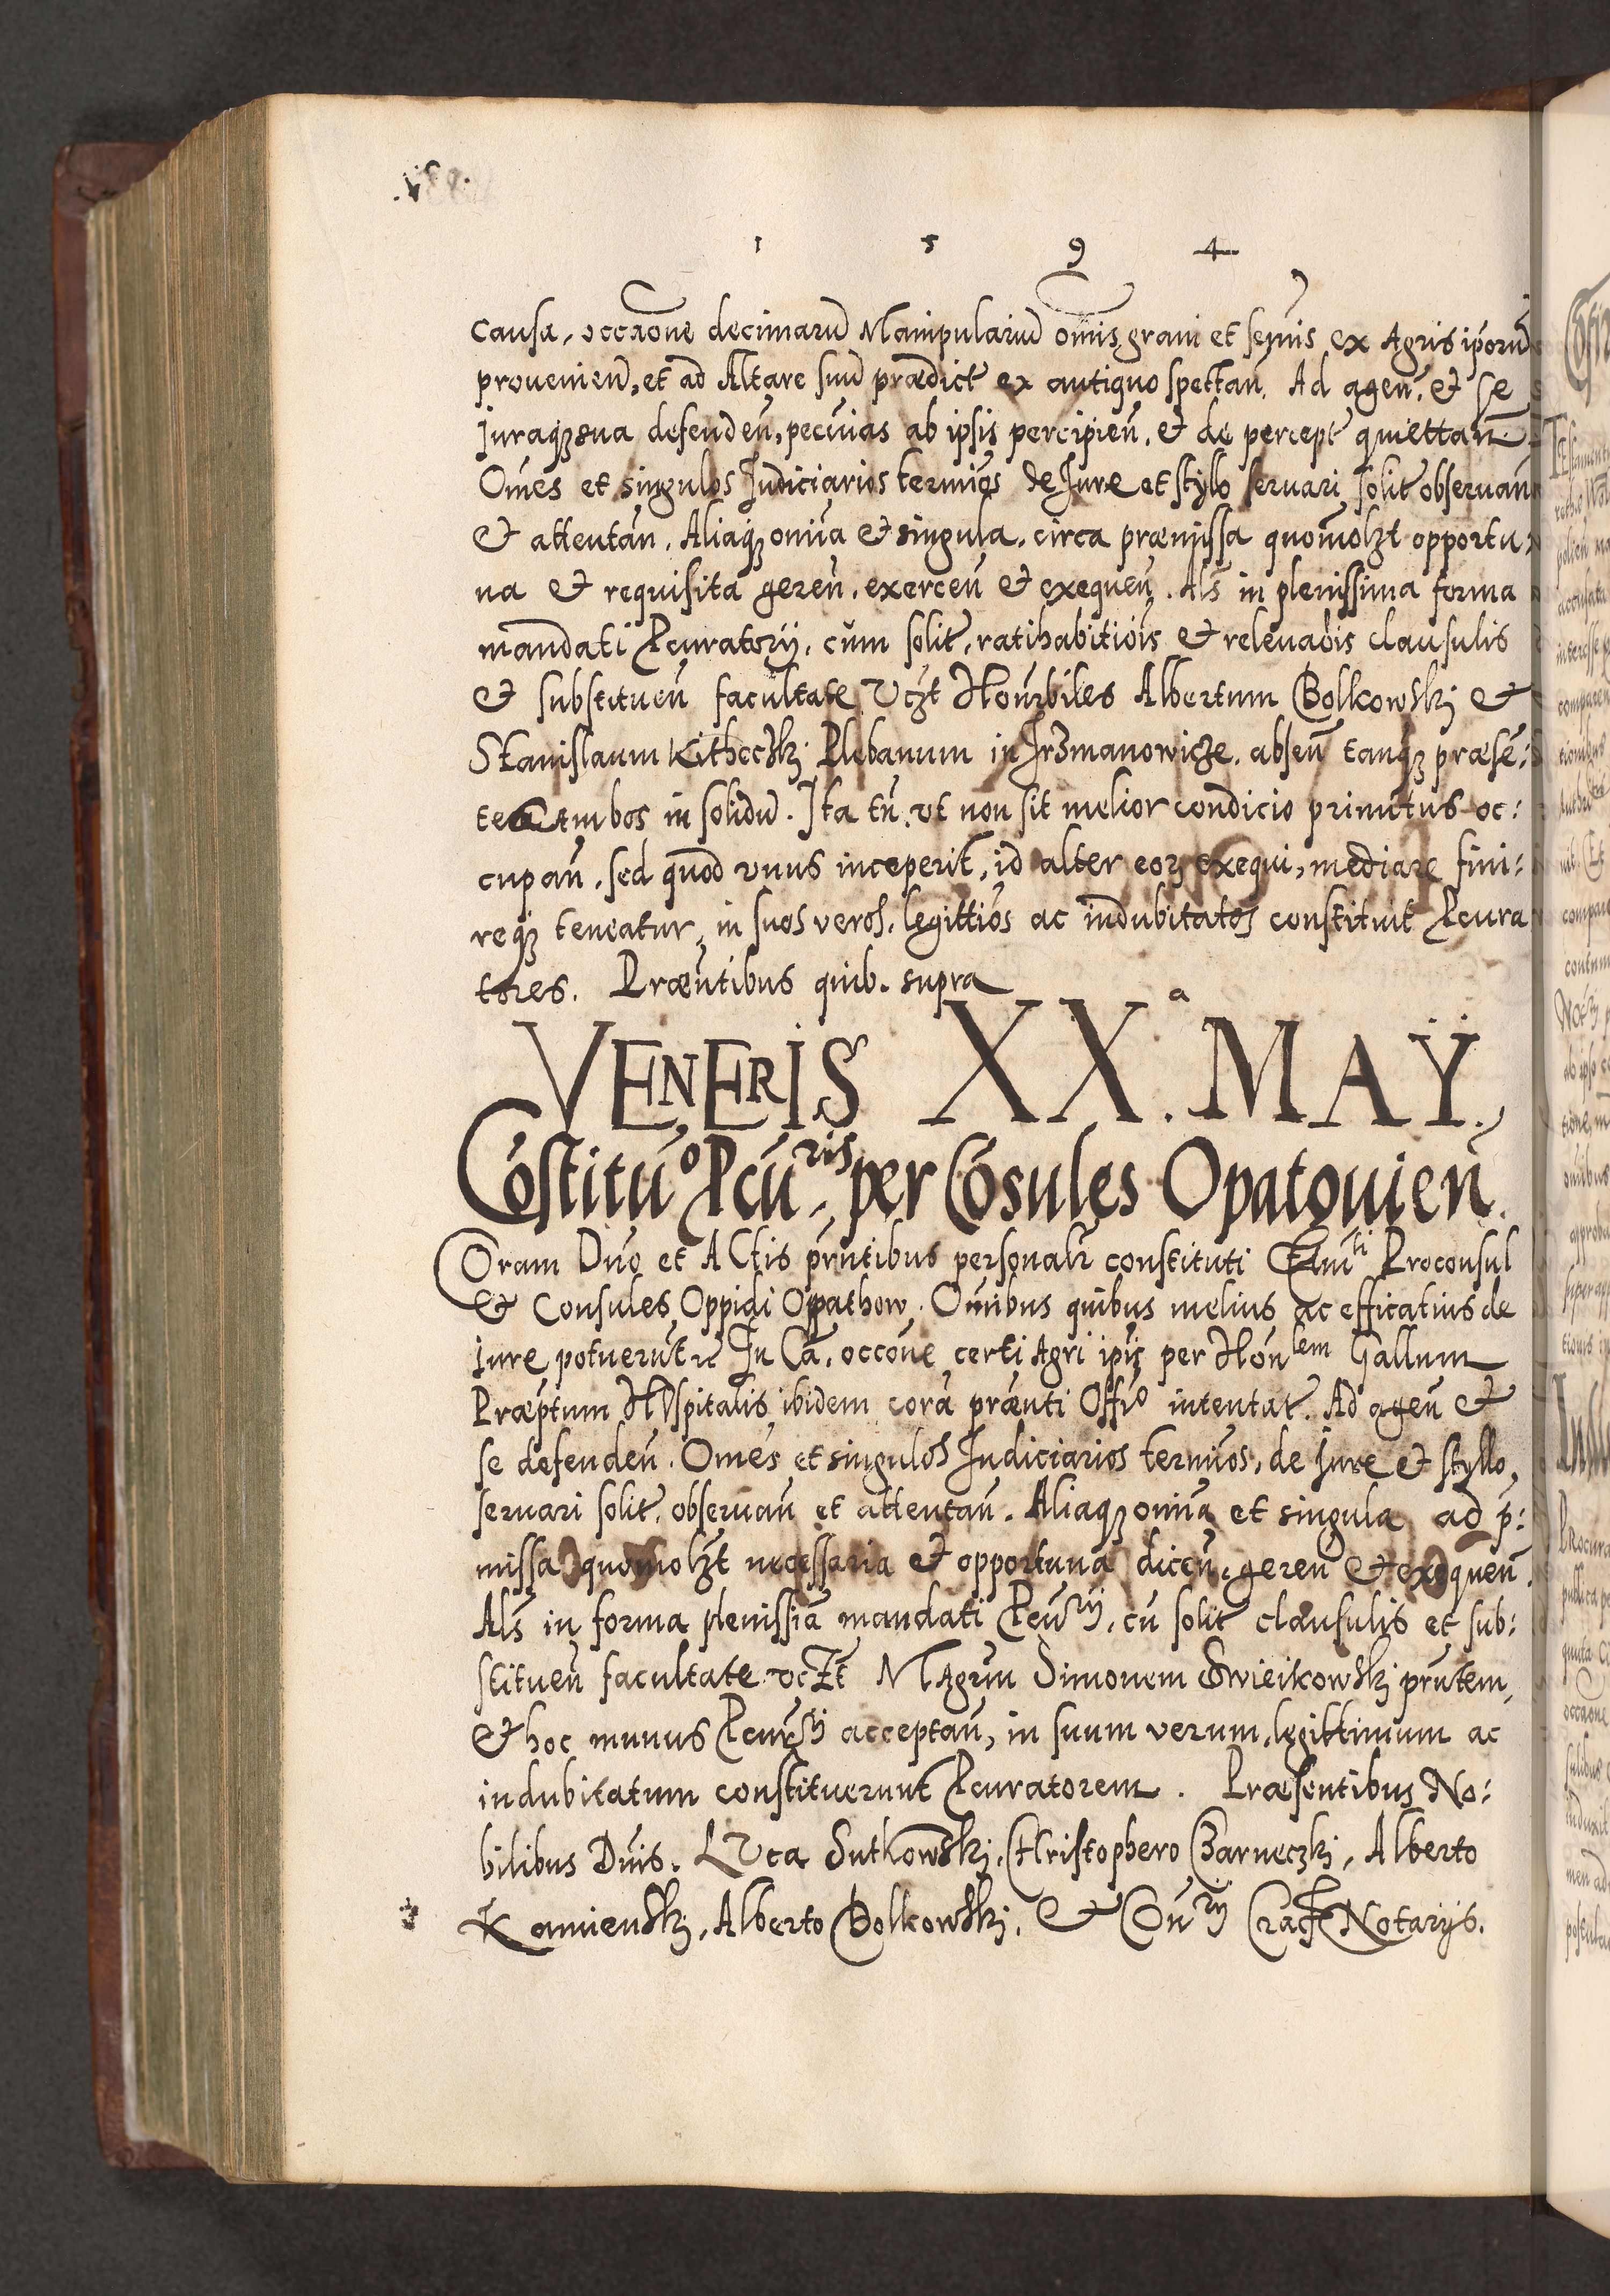 1 5 9 4
causa, occaōne decimarū Manipulariū om̄is grani et semīs ex Agris ip̄orū
proveniend, et ad Altare suū prædict ex antiquo spectan̄. Ad agen̄. et se
iuraqꝫ sua defenden̄, pecunias ab ipsis percipien̄. et de percept quiettan̄.
Om̄es et singulos Judiciarios termi͞os de Jure et stylo servari solit observan̄
et attentan̄. Aliaqꝫ omnia et singula. circa præmissa quomolꝫt opportu:
na et requisita geren̄. exercen̄ et exequen̄. Al̄s in plenissima forma
mandati Pcuratorij. cum solit. ratihabitiōis et relevaōis clausulis
et substituen̄ facultate Vcꝫt Hon̄rbiles Albertum Bolkowskj et
Stanislaum Kitheckj Plebanum in Jrzmanowicze. absen̄ tanqꝫ præsē:
te Ambos in solidū. Ita tn̄. vt non sit melior condicio primitus oc:
cupan̄. sed quod unus inceperit, id alter eoꝝ exequi, mediare fini:
reqꝫ teneatur, in suos veros. legittiōs ac indubitatos constituit Pcura
tores. Præn̄tibus quib. supra
VENERIS XXᵃ. MAY.
Cōstitūᵒ Pcūʳⁱˢ. per Cōsules Opatovien̄.
Coram Dn̄o et Actis pr̄ntibus personalr̄ constituti Fam̄ᵗⁱ Proconsul
et Consules Oppidi Oppathow. Om̄ibus quibus melius ac efficatius de
iure potuerūt ꝛc In Cā. occōne certi Agri ip̄is per Hon̄ˡᵉᵐ Gallum
Præp̄tum Hospitalis ibidem corā præn̄ti Offᵒ intentat. Ad agen̄ et
se defenden̄. Om̄es et singulos Judiciarios termīos, de iure et styllo,
servari solit. observan̄ et attentan̄. Aliaqꝫ omn̄ia et singula ad p̄:
missa quomolꝫt necessaria et opportuna dicen̄. geren̄ et exequen̄.
Al̄s in forma plenissiā mandati Pcūʳⁱʲ. cū solit clausulis et sub:
stituen̄ facultate vcꝫt Magr̄m Simonem Swieikowskj pr̄ntem,
et hoc munus Pcur̄ʳⁱʲ acceptan̄, in suum verum. legittimum ac
indubitatum constituerunt Pcuratorem. Præsentibus No:
bilibus Dn̄is. Luca Sutkowskj. Christophero Barneczkj, Alberto
Kamienskj, Alberto Bolkowskj. et Con̄ʳⁱʲ Notarijs.